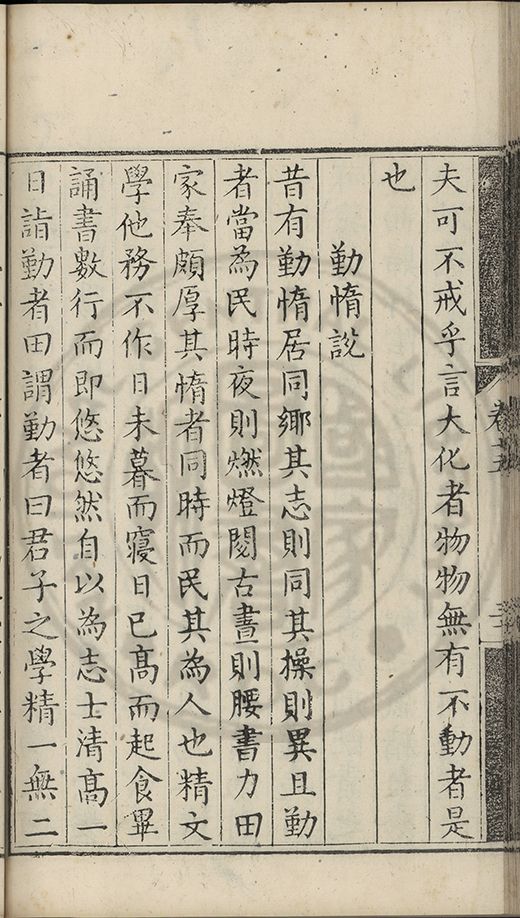 夫可不戒乎言大化者物物無有不動者是
也
勤惰說
昔有勤惰居同鄉其志則同其操則異且勤
者當為民時夜則燃燈閱古晝則腰書力田
家奉頗厚其惰者同時而民其為人也精文
學他務不作日未暮而寢日已髙而起食畢
誦書數行而即悠悠然自以為志士清髙一
日詣勤者田謂勤者曰君子之學精一無二